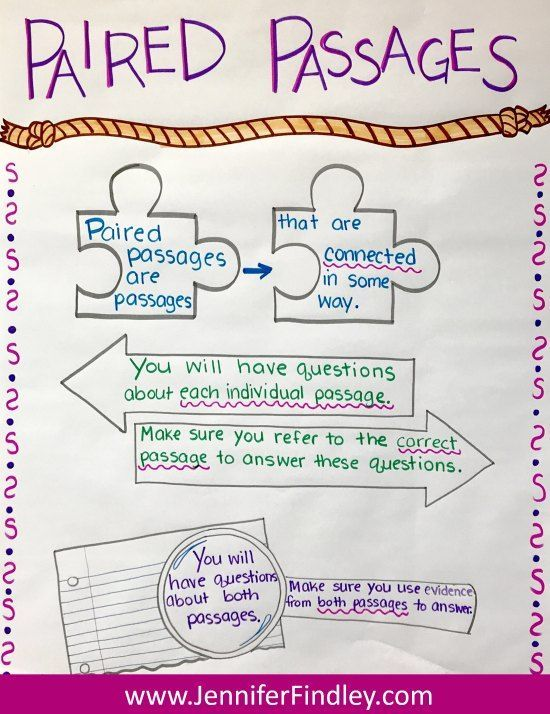 PAIRED PASSAGES
Paired
passages
are
passages
that are
connected
in some
way.
You will have questions
about each individual passage.
Make sure you refer to the correct
passage to answer these questions.
You will
have questions
about both
passages.
Make sure you use evidence
from both passages to answer.
www.JenniferFindley.com